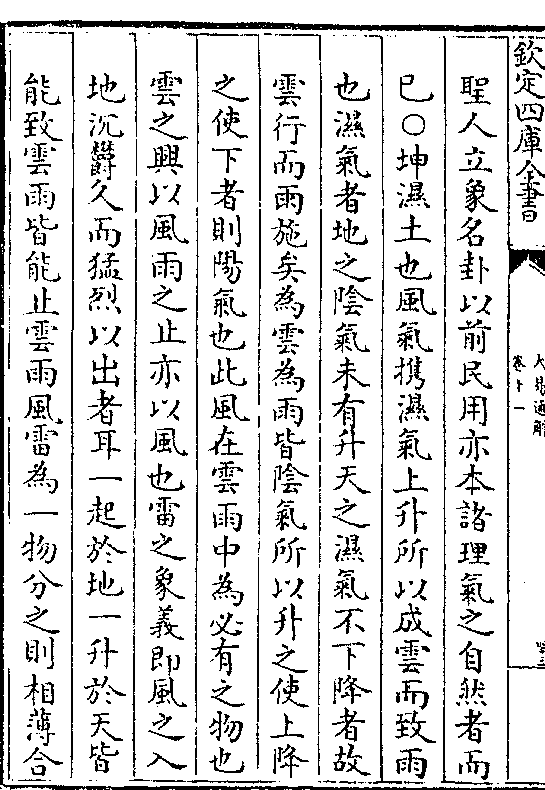 欽定四庫全書
卷十一
聖人立象名卦以前民用亦本諸理氣之自然者而
已○坤濕土也風氣攜濕氣上升所以成雲而致雨
也濕氣者地之陰氣未有升天之濕氣不下降者故
雲行而雨施矣為雲為雨皆陰氣所以升之使上降
之使下者則陽氣也此風在雲雨中為必有之物也
雲之興以風雨之止亦以風也雷之象義即風之入
地沉鬱久而猛烈以出者耳一起於地一升於天皆
能致雲雨皆能止雲雨風雷為一物分之則相薄合